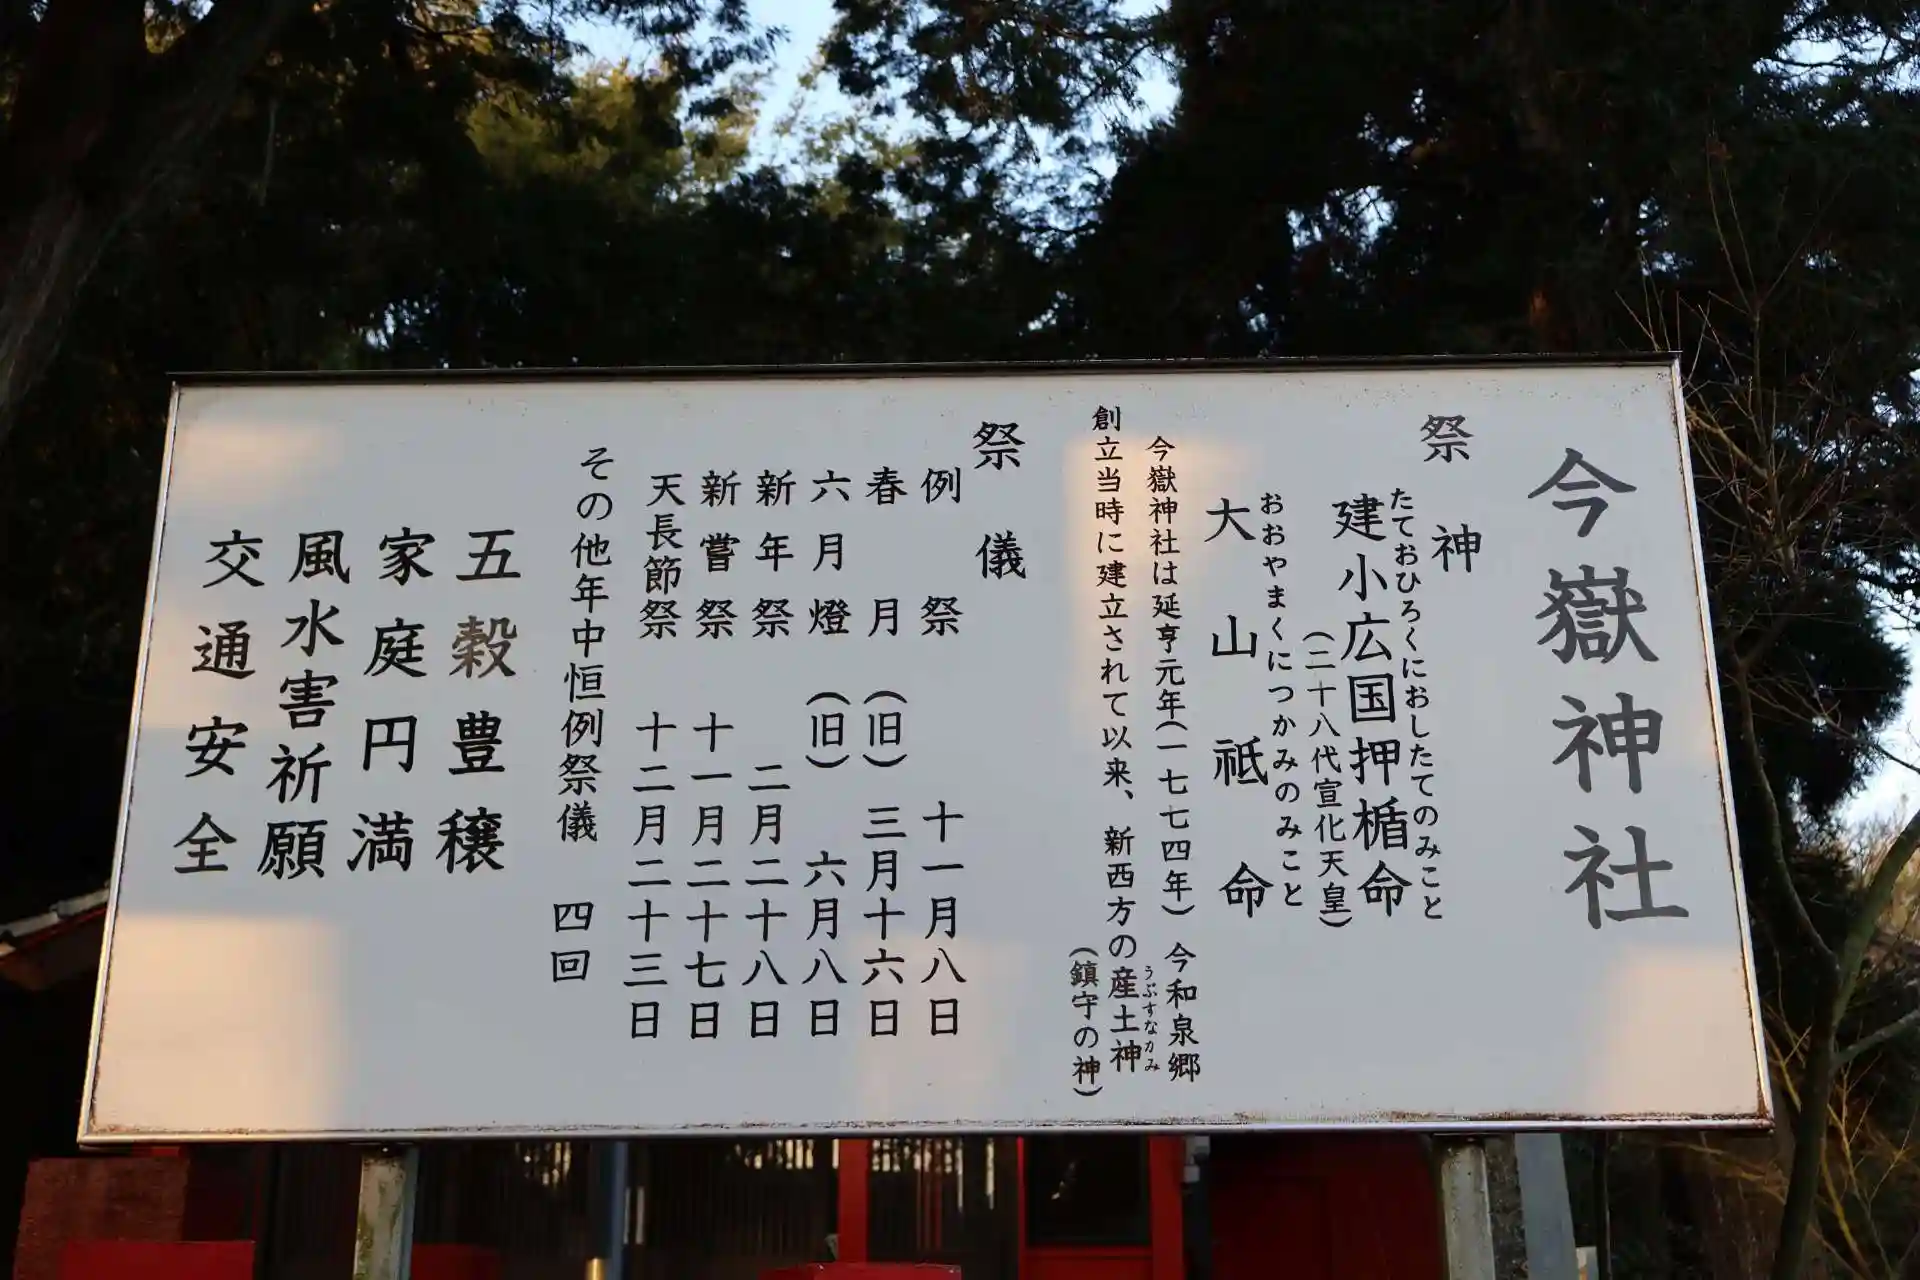 今嶽神社
祭神
たておひろくにおしたてのみこと
建小広国押楯命
(二十八代宣化天皇)
おおやまくにつかみのみこと
大山祗命
今嶽神社は延亨元年(一七七四年)今和泉郷
創立当時に建立されて以来、新西方の産土神
うぶすなかみ
(鎮守の神)
祭儀
例祭 十一月八日
春月(旧)三月十六日
六月燈(旧)六月八日
新年祭 二月二十八日
新嘗祭 十一月二十七日
天長節祭 十二月二十三日
その他年中恒例祭儀 四回
五穀豊穣
家庭円満
風水害祈願
交通安全